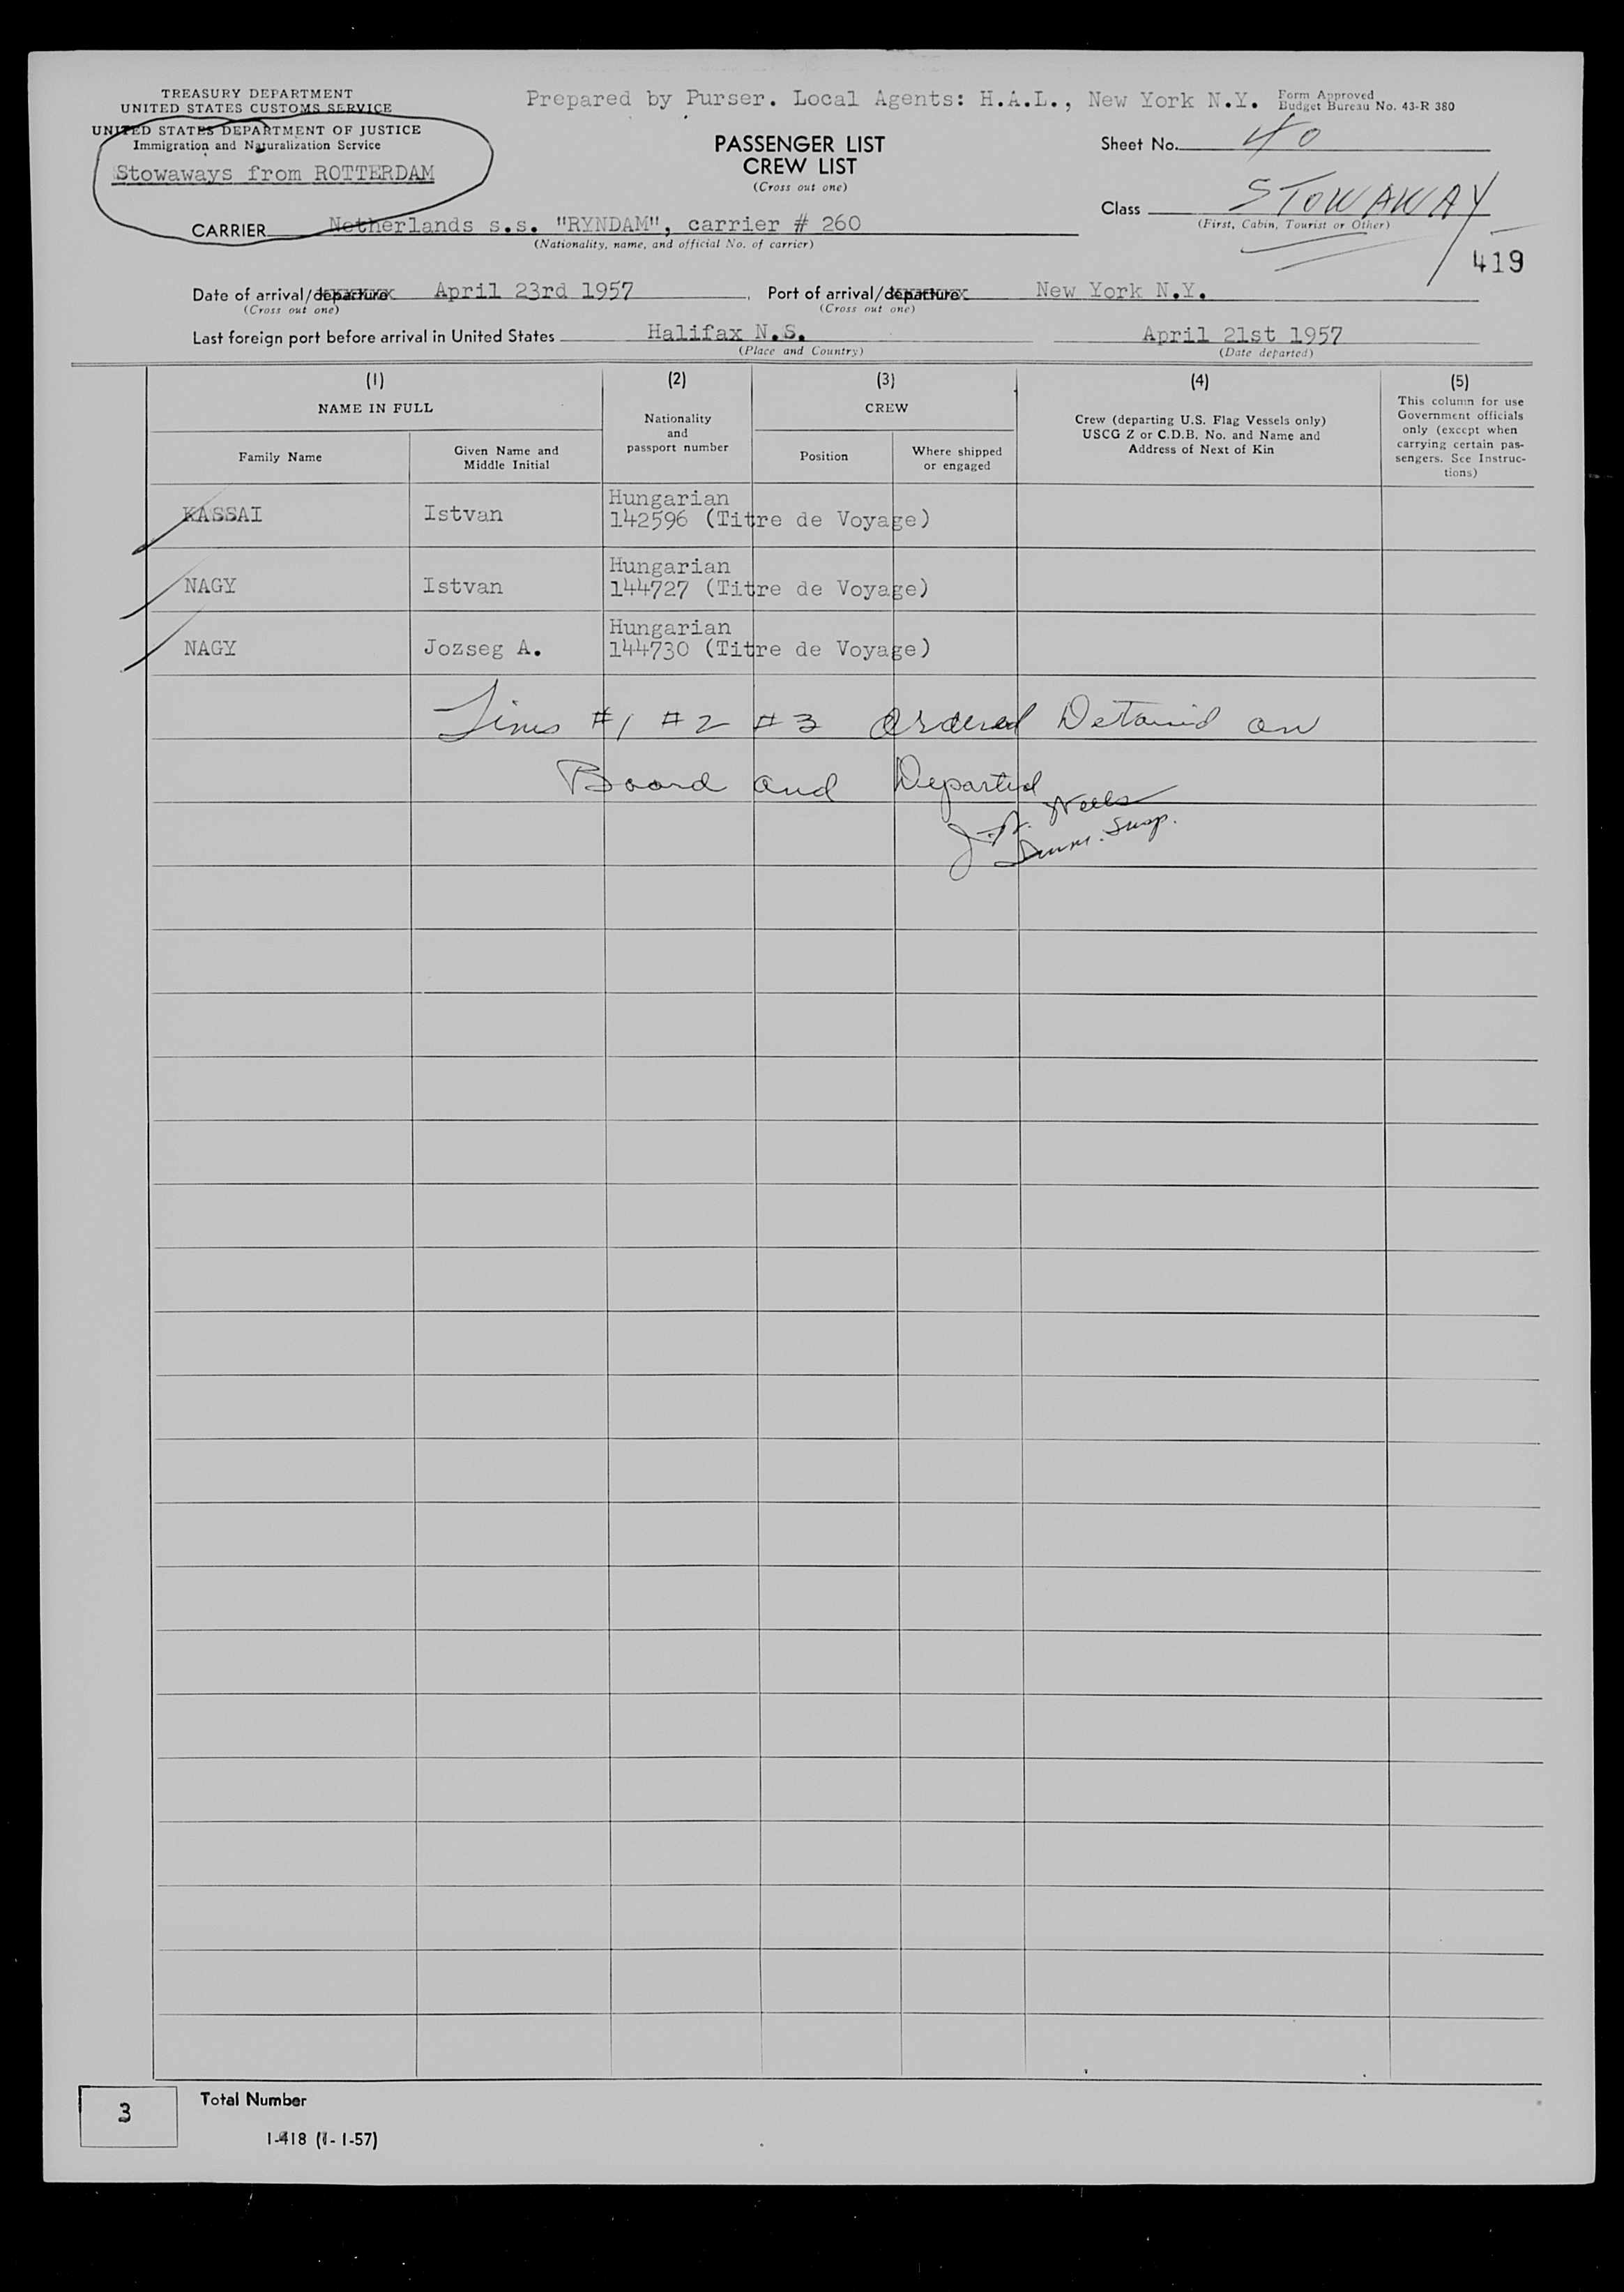 TREASURY DEPARTMENT
UNITED STATES CUSTOMS SERVICE
UNITED STATES DEPARTMENT OF JUSTICE
Immigration and Naturalization Service
Stowaways from ROTTERDAM
Prepared by Purser. Local Agents: H.A.L., New York N.Y.
Form Approved
Budget Bureau No. 43-R 380
PASSENGER LIST
CREW LIST
(Cross out one)
Sheet No. 40
Class STOWAWAY
(First, Cabin, Tourist or Other)
419
CARRIER Netherlands s.s. "RYNDAM", carrier # 260
(Nationality, name, and official No. of carrier)
Date of arrival/departure April 23rd 1957
(Cross out one)
Port of arrival/departure New York N.Y.
(Cross out one)
Last foreign port before arrival in United States Halifax N.S.
(Place and Country)
April 21st 1957
(Date departed)
(1)
NAME IN FULL
Family Name
Given Name and
Middle Initial
(2)
Nationality
and
passport number
(3)
CREW
Position
Where shipped
or engaged
(4)
Crew (departing U.S. Flag Vessels only)
USCG Z or C.D.B. No. and Name and
Address of Next of Kin
(5)
This column for use
Government officials
only (except when
carrying certain pas-
sengers. See Instruc-
tions)
KASSAI Istvan Hungarian
142596 (Titre de Voyage)
NAGY Istvan Hungarian
144727 (Titre de Voyage)
NAGY Jozseg A. Hungarian
144730 (Titre de Voyage)
Lines #1 #2 #3 Ordered Detained on
Board and Departed
3
Total Number
I-418 (1-1-57)